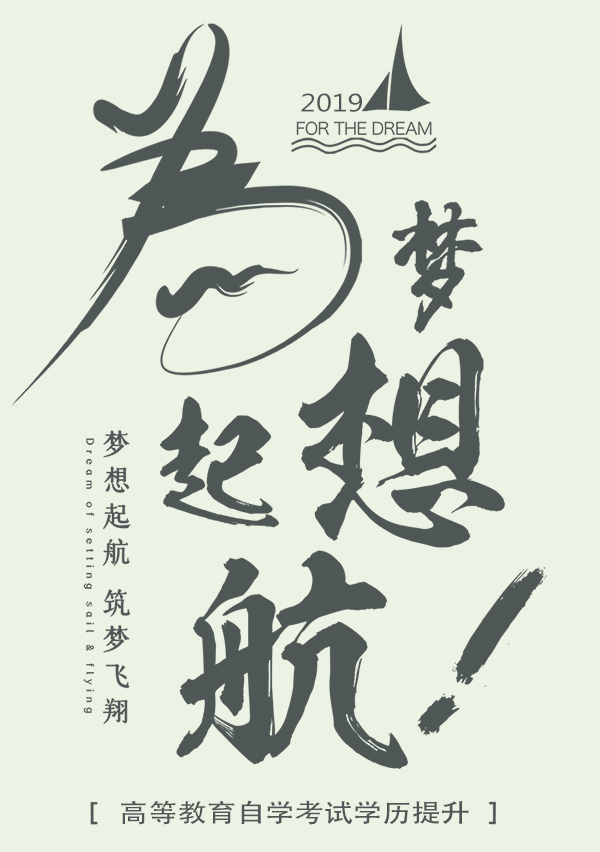 2019
FOR THE DREAM
为
梦
想
起
航！
梦想起航 筑梦飞翔
Dream of setting sail & flying
[ 高等教育自学考试学历提升 ]